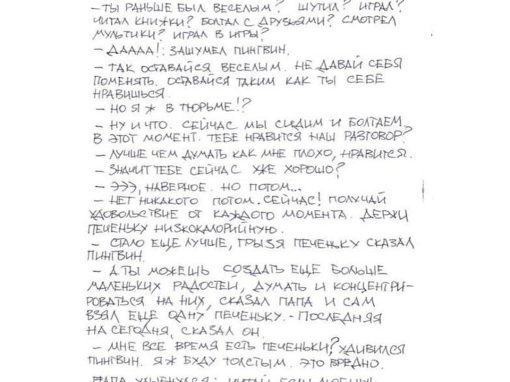 – ТЫ РАНЬШЕ БЫЛ ВЕСЕЛЫМ? ШУТИЛ? ИГРАЛ?
ЧИТАЛ КНИЖКИ? БОЛТАЛ С ДРУЗЬЯМИ? СМОТРЕЛ
МУЛЬТИКИ? ИГРАЛ В ИГРЫ?
– ДАААА!; ЗАШУМЕЛ ПИНГВИН.
– ТАК ОСТАВАЙСЯ ВЕСЕЛЫМ. НЕ ДАВАЙ СЕБЯ
ПОМЕНЯТЬ. ОСТАВАЙСЯ ТАКИМ КАК ТЫ СЕБЕ
НРАВИШЬСЯ.
– НО Я Ж В ТЮРЬМЕ!?
– НУ И ЧТО. СЕЙЧАС МЫ СИДИМ И БОЛТАЕМ
В ЭТОТ МОМЕНТ. ТЕБЕ НРАВИТСЯ НАШ РАЗГОВОР?
– ЛУЧШЕ ЧЕМ ДУМАТЬ КАК МНЕ ПЛОХО, НРАВИТСЯ.
– ЗНАЧИТ ТЕБЕ СЕЙЧАС УЖЕ ХОРОШО?
– ЭЭЭ, НАВЕРНОЕ. НО ПОТОМ...
– НЕТ НИКАКОГО ПОТОМ. СЕЙЧАС! ПОЛУЧАЙ
УДОВОЛЬСТВИЕ ОТ КАЖДОГО МОМЕНТА. ДЕРЖИ
ПЕЧЕНЬКУ НИЗКОКАЛОРИЙНУЮ.
– СТАЛО ЕЩЕ ЛУЧШЕ, ГРЫЗЯ ПЕЧЕНЬКУ СКАЗАЛ
ПИНГВИН.
– А ТЫ МОЖЕШЬ СОЗДАТЬ ЕЩЕ БОЛЬШЕ
МАЛЕНЬКИХ РАДОСТЕЙ, ДУМАТЬ И КОНЦЕНТРИ-
РОВАТЬСЯ НА НИХ, СКАЗАЛ ПАПА И САМ
ВЗЯЛ ЕЩЕ ОДНУ ПЕЧЕНЬКУ. - ПОСЛЕДНЯЯ
НА СЕГОДНЯ, СКАЗАЛ ОН.
– МНЕ ВСЕ ВРЕМЯ ЕСТЬ ПЕЧЕНЬКИ? УДИВИЛСЯ
ПИНГВИН. Я Ж БУДУ ТОЛСТЫМ. ЭТО ВРЕДНО.
ПАПА УЛЫБНУЛСЯ: ЧИТАЙ ЕСЛИ ЛЮБИШЬ